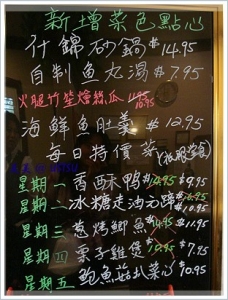 新增菜色點心
什錦砂鍋 $14.95
自制魚丸湯 $7.95
火腿竹笙燴絲瓜 10.95
海鮮魚肚羹 $12.95
每日特價菜
星期一香酥鴨 $9.95
星期二冰糖走油元蹄 10.95
星期三蔥烤鯽魚 $11.95
星期四栗子雞煲 $7.95
星期五鮑魚菇扒菜心 $10.95